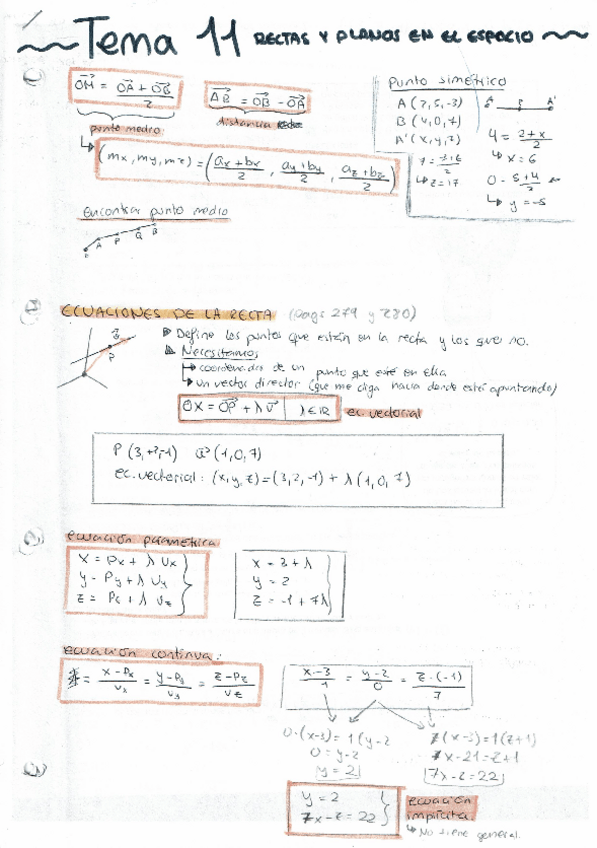 Tema 11 RECTAS Y PLANOS EN EL ESPACIO
OM = OA + OB / 2
AB = OB - OA
punto medio
distancia
(mx, my, mz) = (ax + bx / 2, ay + by / 2, az + bz / 2)
Punto simétrico
A (2, 5, -3)
B (4, 0, 7)
A' (x, y, z)
A B A'
4 = 2 + x / 2
x = 6
7 = -3 + z / 2
z = 17
y = -5
encontrar punto medio
A P Q B
ECUACIONES DE LA RECTA (Pags 279 y 280)
Define los puntos que están en la recta y los que no.
Necesitamos
coordenadas de un punto que esté en ella
un vector director (que me diga hacia donde está apuntando)
OX = OP + λ v | λ ∈ ℝ ec vectorial
P (3, +2, -1) (1, 0, 7)
ec. vectorial: (x, y, z) = (3, 2, -1) + λ (1, 0, 7)
ecuación paramétrica
x = Px + λ Vx
y = Py + λ Vy
z = Pz + λ Vz
x = 3 + λ
y = 2
z = -1 + 7λ
ecuación continua:
= x - Px / Vx = y - Py / Vy = z - Pz / Vz
x - 3 / 1 = y - 2 / 0 = z - (-1) / 7
0·(x-3) = 1(y-2
0 = y-2
y = 2
7(x-3) = 1(z+1)
7x - 21 = z + 1
7x - z = 22
y = 2
7x - z = 22
ecuación
implícita
No tiene general.